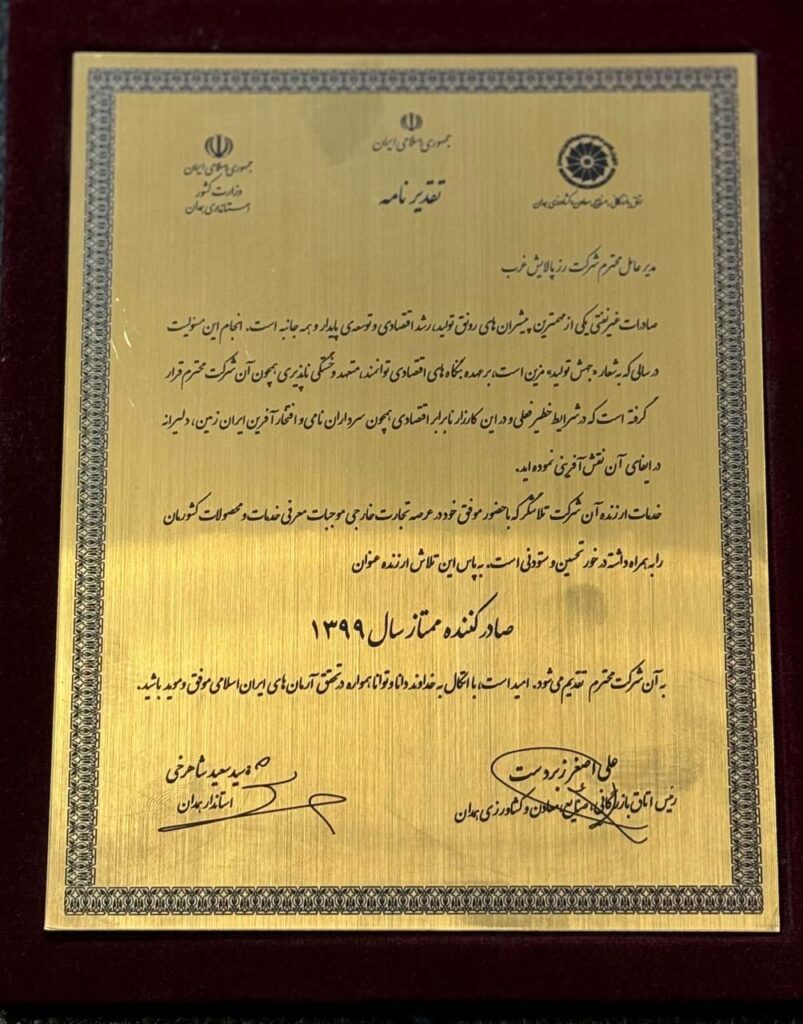 جمهوری اسلامی ایران
تقدیر نامه
جمهوری اسلامی ایران
وزارت کشور
استانداری همدان
اتاق بازرگانی، صنایع، معادن و کشاورزی همدان
مدیر عامل محترم شرکت رز پالایش غرب
صادرات غیرنفتی یکی از مهمترین پیشران های رونق تولید، رشد اقتصادی و توسعه ی پایدار و همه جانبه است. انجام این مسئولیت
در سالی که به شعار «جهش تولید» مزین است، بر عهده بنگاه های اقتصادی توانمند، متعهد و خستگی ناپذیری همچون آن شرکت محترم قرار
گرفته است که در شرایط خطیر فعلی و در این کارزار نابرابر اقتصادی همچون سرداران نامی و افتخار آفرین ایران زمین، دلیرانه
در ایفای آن نقش آفرینی نموده اید.
خدمات ارزنده آن شرکت تلاشگر که با حضور موفق خود در عرصه تجارت خارجی موجبات معرفی خدمات و محصولات کشورمان
را به همراه داشته در خور تحسین و ستودنی است. به پاس این تلاش ارزنده عنوان
صادر کننده ممتاز سال ۱۳۹۹
به آن شرکت محترم تقدیم می شود. امید است، با اتکال به خداوند دانا و توانا همواره در تحقق آرمان های ایران اسلامی موفق و موید باشید.
علی اصغر زبردست
رئیس اتاق بازرگانی، صنایع، معادن و کشاورزی همدان
سید سعید شاهرخی
استاندار همدان